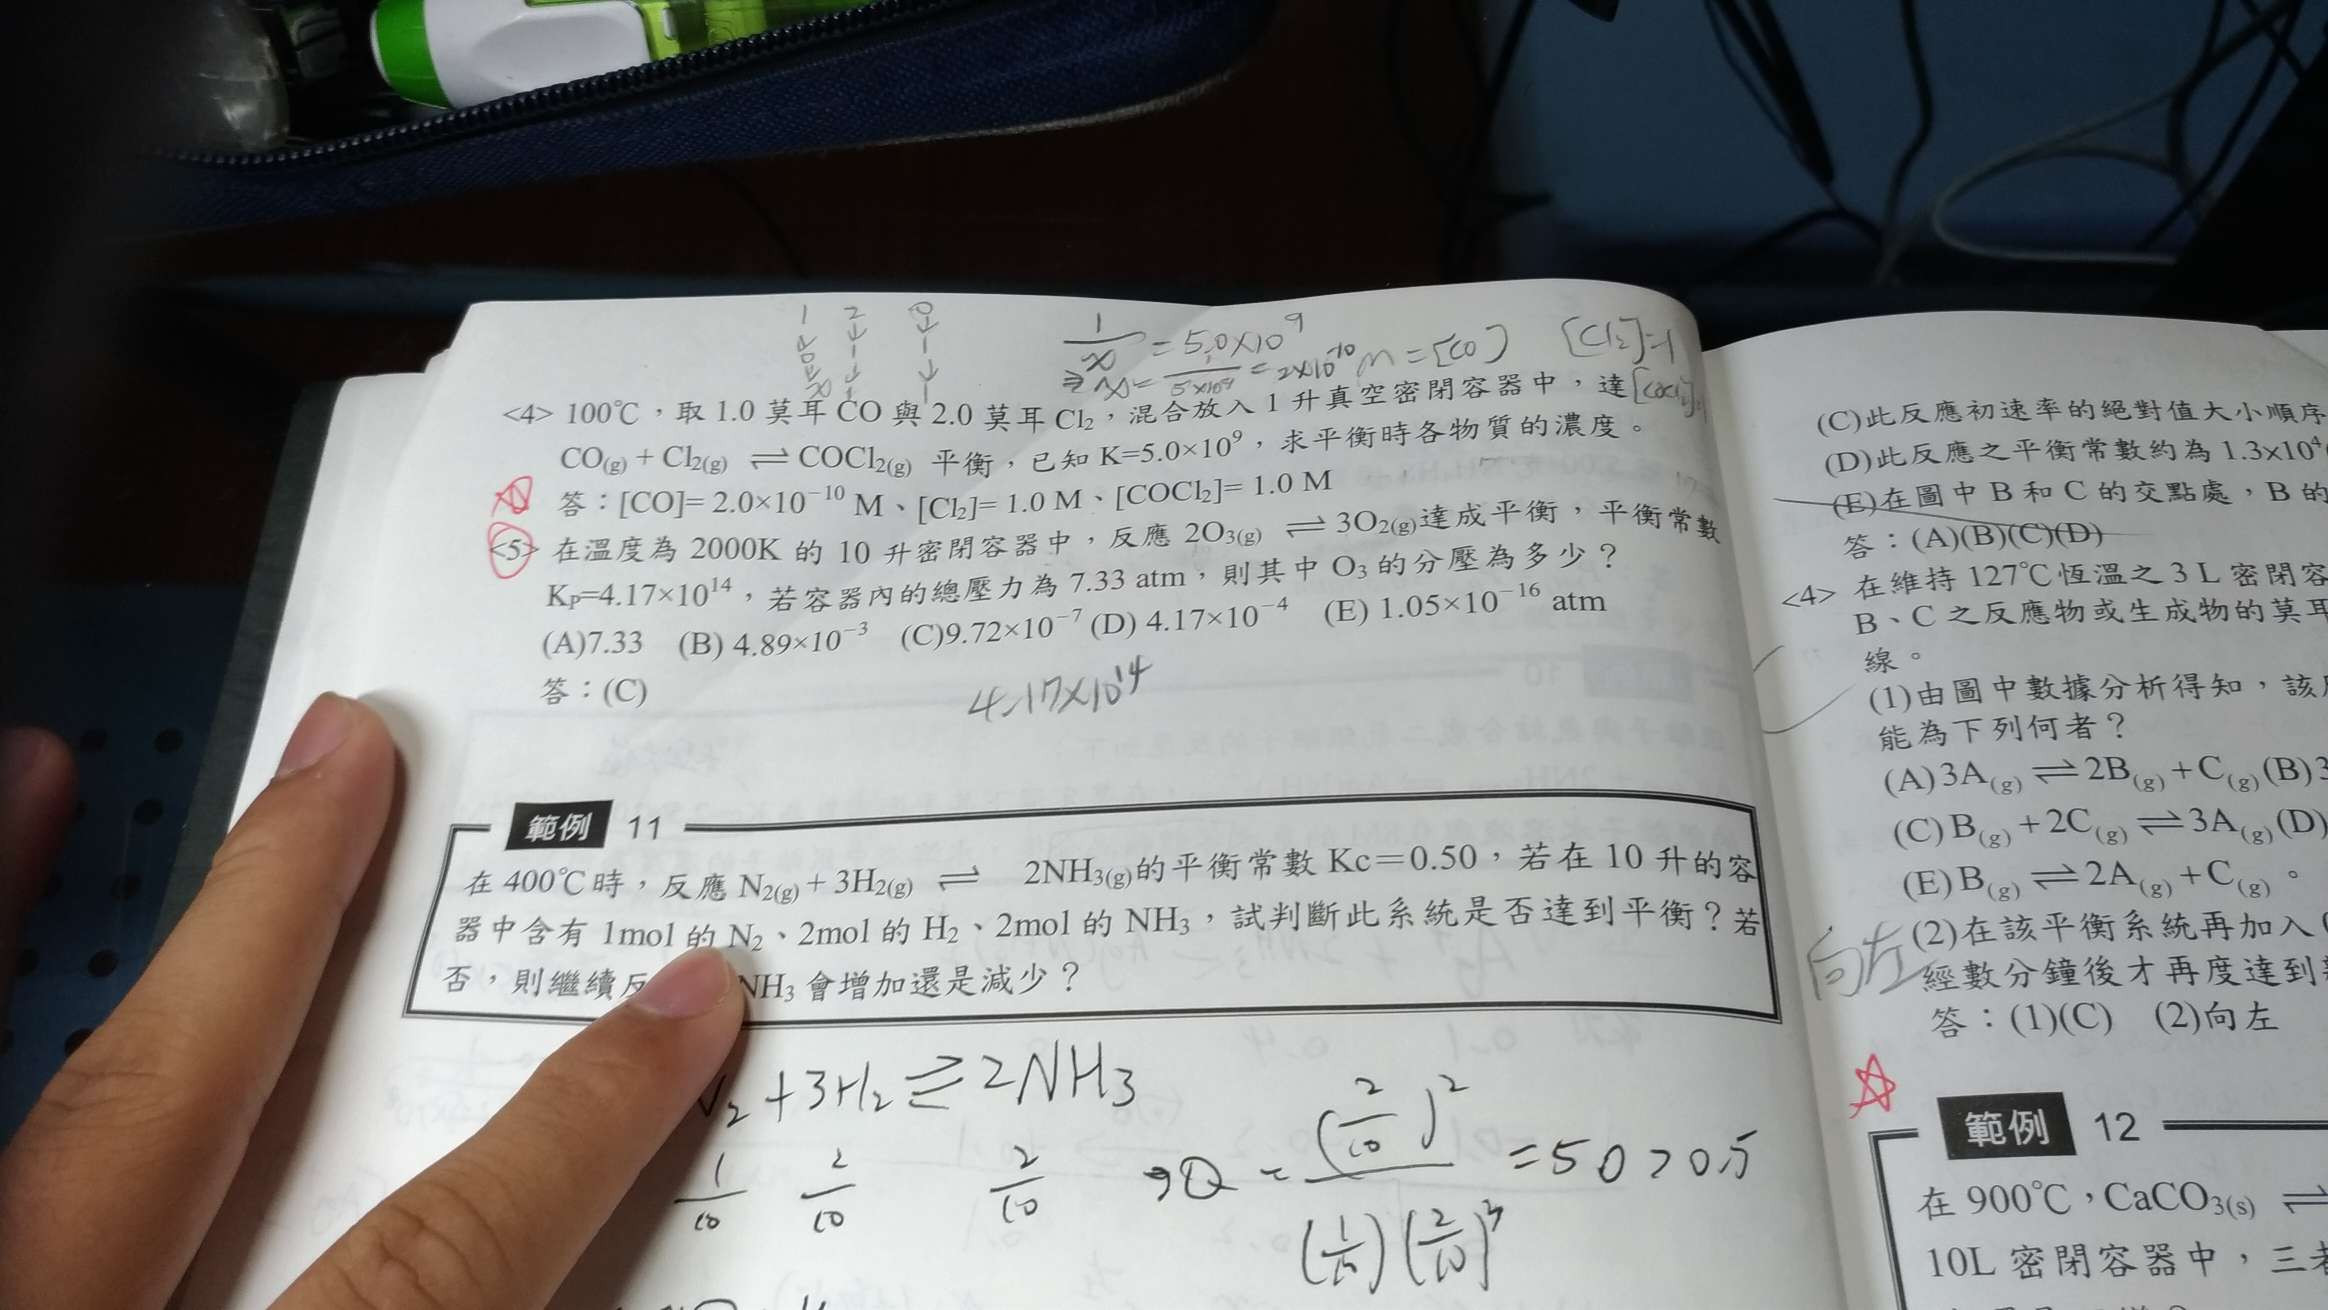 1 2 0
1/x = 5.0×10⁹
⇒ x = 1/5×10⁹ = 2×10⁻¹⁰ M = [CO] [Cl₂]=1
<4> 100℃，取 1.0 莫耳 CO 與 2.0 莫耳 Cl₂，混合放入 1 升真空密閉容器中，達
CO(g) + Cl₂(g) ⇌ COCl₂(g) 平衡，已知 K=5.0×10⁹，求平衡時各物質的濃度。
答：[CO]= 2.0×10⁻¹⁰ M、[Cl₂]= 1.0 M、[COCl₂]= 1.0 M
<5> 在溫度為 2000K 的 10 升密閉容器中，反應 2O₃(g) ⇌ 3O₂(g)達成平衡，平衡常數
KP=4.17×10¹⁴，若容器內的總壓力為 7.33 atm，則其中 O₃ 的分壓為多少？
(A)7.33 (B) 4.89×10⁻³ (C)9.72×10⁻⁷ (D) 4.17×10⁻⁴ (E) 1.05×10⁻¹⁶ atm
答：(C)
4.17×10¹⁴
範例 11
在 400℃時，反應 N₂(g) + 3H₂(g) ⇌ 2NH₃(g)的平衡常數 Kc＝0.50，若在 10 升的容
器中含有 1mol 的 N₂、2mol 的 H₂、2mol 的 NH₃，試判斷此系統是否達到平衡？若
否，則繼續反 NH₃ 會增加還是減少？
N₂ + 3H₂ ⇌ 2NH₃
1/10 2/10 2/10 ⇒ Q = (2/10)² / (1/10)(2/10)³ = 50 > 0.5
(C)此反應初速率的絕對值大小順序
(D)此反應之平衡常數約為 1.3x10⁴
(E)在圖中 B 和 C 的交點處，B 的
答：(A)(B)(C)(D)
<4> 在維持 127℃恆溫之 3 L 密閉容
B、C 之反應物或生成物的莫耳
線。
(1)由圖中數據分析得知，該
能為下列何者？
(A)3A(g) ⇌ 2B(g) + C(g) (B)3
(C) B(g) + 2C(g) ⇌ 3A(g) (D)
(E) B(g) ⇌ 2A(g) + C(g)。
向左
(2)在該平衡系統再加入
經數分鐘後才再度達到
答：(1)(C) (2)向左
範例 12
在 900℃，CaCO₃(s) ⇌
10L 密閉容器中，三